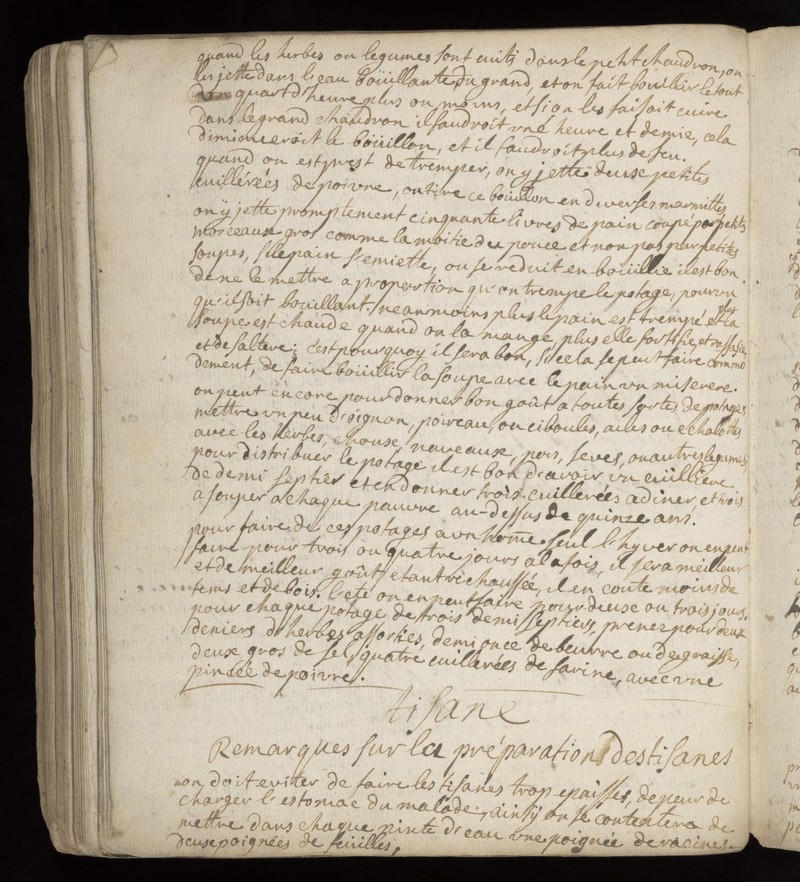 quand les herbes ou legumes sont cuits dans le petit chaudron, on
les jette dans l'eau boüillante du grand, et on fait boüillir le tout
quart d'heure plus ou moins, et si on les faisoit cuire
dans le grand chaudron il faudroit vne heure et demie, cela
diminueroit le boüillon, et il faudroit plus de feu.
quand on est prest de tremper, on y jette deuse petites
cuillérées de poivre, on tire ce boüillon en diverses marmittes
on ÿ jette promptement cinquante livres de pain coupé par petits
morceause gros comme la moitie du pouce et non pas par petites
soupes, si le pain s'emiette, ou se reduit en boüillie il est bon
de ne le mettre a proportion qu'on trempe le potage, pourvu
qu'il soit boüillant. neanmoins plus le pain est trempé et plus la
soupe est chaude quand on la mange, plus elle fortifie, et rassasie,
et desaltere; c'est pourquoy il sera bon, si cela se peut faire commo
dement, de faire boüillir la soupe avec le pain vn miserere.
on peut encore pour donner bon goût a toutes sortes de potages
mettre vn peu d'oignon, poireau, ou ciboules, aulx ou echalottes
avec les herbes, chouse, naveause, pois, feves, ou autres legumes,
pour distribuer le potage il est bon d'avoir vn cüilliere
de demi septier et en donner trois cuillerées a diner et trois
a souper a chaque pauvre au-dessus de quinze ans.
pour faire de ces potages a vn home seul l'hyver on en peut
faire pour trois ou quatre jours a la fois, il sera meilleur
et de meilleur goût etant réchauffée, il en coute moins de
tems et de bois. l'eté on en peut faire pour deuse ou trois jours.
pour chaque potage de trois demi septiers, prenez pour deux
deniers d'herbes assorties, demi once de beurre ou de graisse,
deuse gros de sel, quatre cuillerées de farine, avec vne
pincée de poivre.
tisane
Remarques sur la préparation des tisanes
on doit eviter de faire les tisanes trop epaisses, de peur de
charger l'estomac du malade, ainsÿ on se contentera de
mettre dans chaque pinte d'eau vne poignée de racines.
deuse poignées de feüilles,